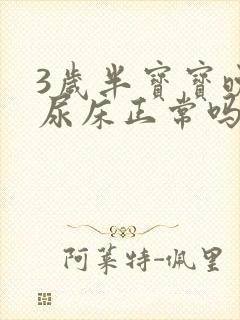 3歲半寶寶
尿床正常吗
阿莱特-佩里